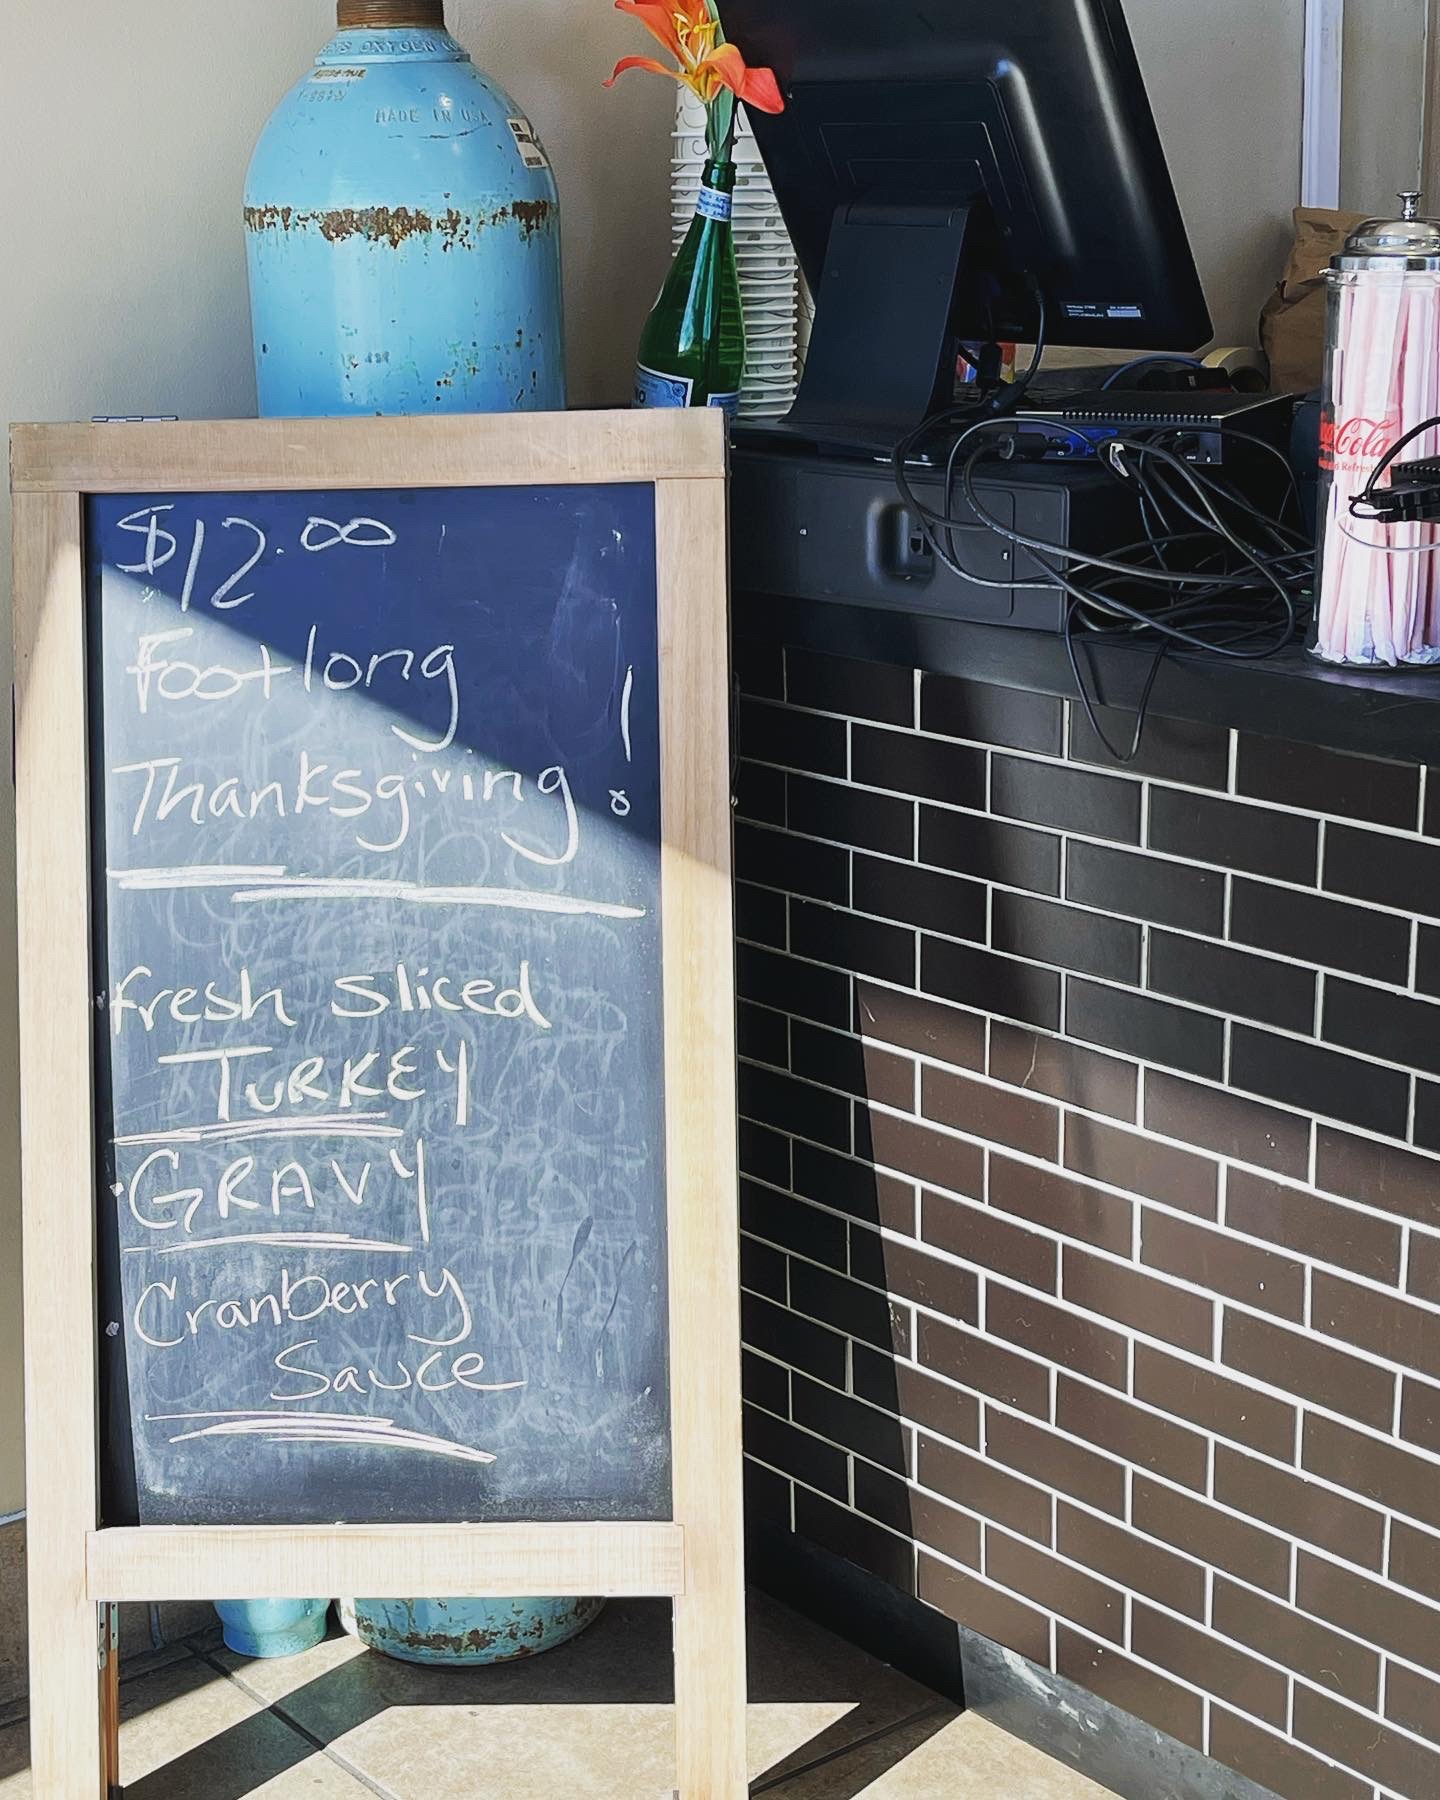 OXYGEN CO
MADE IN USA
$12.00
Footlong
Thanksgiving!
fresh sliced
TURKEY
GRAVY
Cranberry
Sauce
Coca-Cola